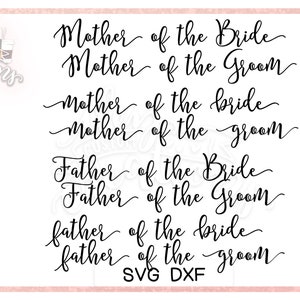 Mother of the Bride
Mother of the Groom
mother of the bride
mother of the groom
Father of the Bride
Father of the Groom
father of the bride
father of the groom
SVG DXF